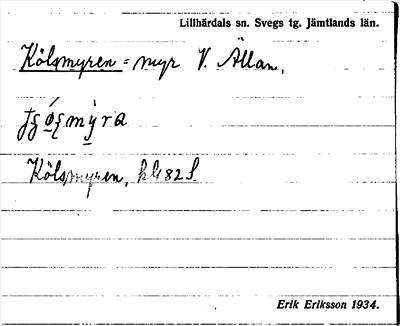 Lillhärdals sn. Svegs tg. Jämtlands län.
Kölsmyren = myr V. Ällan.
Kölsmyren,
Erik Eriksson 1934.